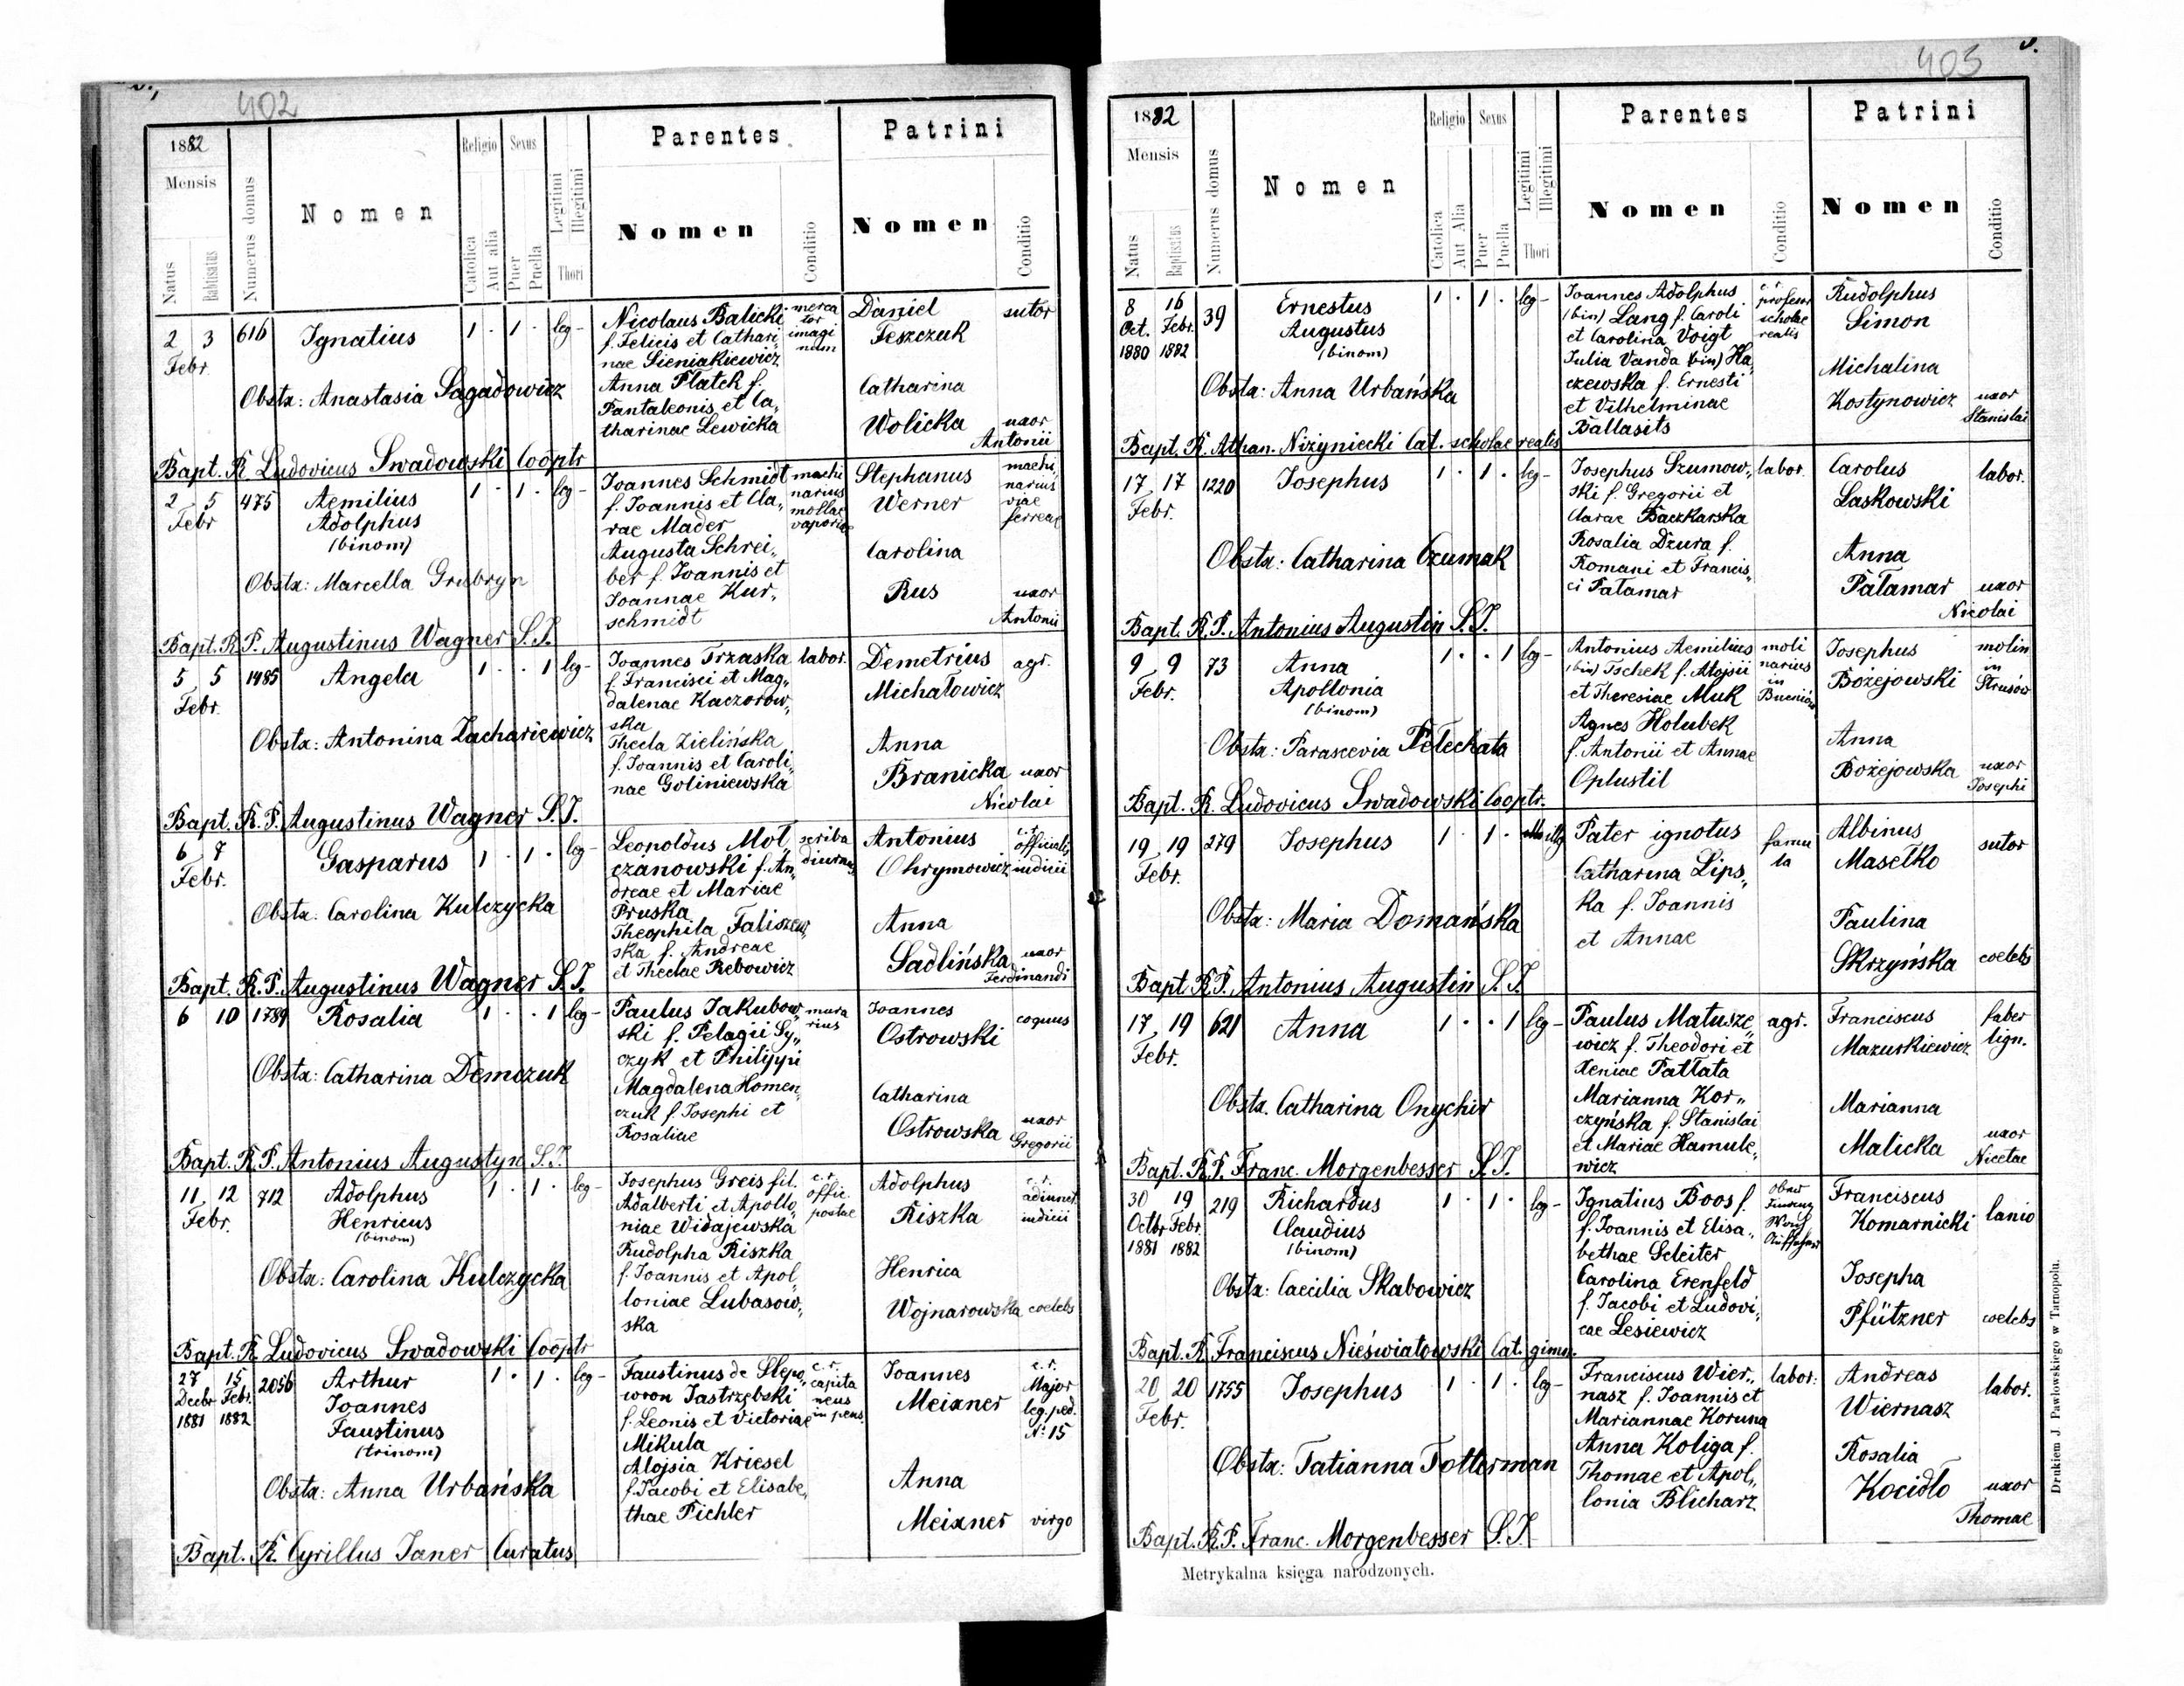 402
1882
Mensis
Natus
Babtisatus
Numerus domus
Nomen
Religio
Catolica
Aut alia
Sexus
Puer
Puella
Legitimi
Illegitimi
Thori
Parentes
Nomen
Conditio
Patrini
Nomen
Conditio
2 3 616 Ignatius 1 · 1 · leg-
Febr.
Obstx: Anastasia Sagadowicz
Nicolaus Balicki
f. Felicis et Cathari„
nae Sieniakiewicz
Anna Platek f.
Pantaleonis et Ca„
tharinae Lewicka
merca
tor
imagi
num
Daniel sutor
Feszczuk
Catharina
Wolicka uxor
Antonii
Bapt. R. Ludovicus Swadowski Cooptr
2 5 475 Aemilius 1 · 1 · leg-
Febr Adolphus
(binom)
Obstx: Marcella Grubryn
Joannes Schmidt
f. Joannis et Cla„
rae Mader
Augusta Schrei„
ber f. Joannis et
Joannae Kur„
schmidt
machi
narius
mollae
vaporiae
Stephanus
Werner
machi„
narius
viae
ferreae
Carolina
Rus uxor
Antonii
Bapt. R. P. Augustinus Wagner S.J.
5 5 1485 Angela 1 · · 1 leg-
Febr.
Obstx: Antonina Zachariewicz
Joannes Trzaska labor.
f. Francisci et Mag„
dalenae Kaczorow„
ska
Thecla Zielińska
f. Joannis et Caroli„
nae Goliniewska
Demetrius agr.
Michałowicz
Anna
Branicka uxor
Nicolai
Bapt. R. P. Augustinus Wagner S.J.
6 7 Gasparus 1 · 1 · leg-
Febr.
Obstx: Carolina Kulczycka
Leopoldus Moł„
czanowski f. An„
dreae et Mariae
Pruska
Theophila Faliszew„
ska f. Andreae
et Theclae Rebowicz
scriba
diurnus
Antonius
Ohrymowicz
c. r.
officialis
iudicii
Anna
Sadlińska uxor
Ferdinandi
Bapt. R. P. Augustinus Wagner S.J.
6 10 1789 Rosalia 1 · · 1 leg-
Obstx: Catharina Demczuk
Paulus Jakubow„
ski f. Pelagii Sy„
czyk et Philippi
Magdalena Homen„
czuk f. Josephi et
Rosaliae
mura
rius
Joannes coquus
Ostrowski
Catharina
Ostrowska uxor
Gregorii
Bapt. R. P. Antonius Augustyn S.J.
11 12 712 Adolphus 1 · 1 · leg-
Febr. Henricus
(binom)
Obstx: Carolina Kulczycka
Josephus Greis fil.
Adalberti et Apollo„
niae Widajewska
Rudolpha Riszka
f. Joannis et Apol„
loniae Lubasow„
ska
c. r.
offic.
postae
Adolphus
Riszka
c. r.
adiunct
iudicii
Henrica
Wojnarowska coelebs
Bapt. R. Ludovicus Swadowski Cooptr
27 15 2056 Arthur 1 · 1 · leg-
Decbr Febr. Joannes
1881 1882 Faustinus
(trinom)
Obstx: Anna Urbańska
Faustinus de Slepo„
wron Jastrzębski
f. Leonis et Victoriae
Mikula
Alojsia Kriesel
f. Jacobi et Elisabe„
thae Pichler
c. r.
capita
neus
in pens.
Joannes
Meixner
c. r.
Major
leg. ped.
N: 15
Anna
Meixner virgo
Bapt. R. Cyrillus Janer Curatus
403
1882
Mensis
Natus
Baptisatus
Numerus domus
Nomen
Religio
Catolica
Aut Alia
Sexus
Puer
Puella
Legitimi
Illegitimi
Thori
Parentes
Nomen
Conditio
Patrini
Nomen
Conditio
8 16 39 Ernestus 1 · 1 · leg-
Oct. Febr. Augustus
1880 1882 (binom)
Obstx: Anna Urbańska
Joannes Adolphus
(bin) Lang f. Caroli
et Carolina Voigt
Julia Vanda (bin) Ha„
czewska f. Ernesti
et Vilhelminae
Ballasits
c. r.
profesor
scholae
realis
Rudolphus
Simon
Michalina
Kostynowicz uxor
Stanislai
Bapt. R. Athan. Niżyniecki Cat. scholae realis
17 17 1220 Josephus 1 · 1 · leg-
Febr.
Obstx: Catharina Czumak
Josephus Szumow„ labor.
ski f. Gregorii et
Clarae Baczkarska
Rosalia Dzura f.
Romani et Francis„
ci Patamar
Carolus labor.
Laskowski
Anna
Patamar uxor
Nicolai
Bapt. R. P. Antonius Augustin S.J.
9 9 73 Anna 1 · · 1 leg-
Febr. Apollonia
(binom)
Obstx: Parascevia Pelechata
Antonius Aemilius
(bin) Tschek f. Alojsii
et Theresiae Muk
Agnes Holubek
f. Antonii et Annae
Oplustil
moli
narius
in
Bucniów
Josephus
Bożejowski
molin
in
Strusów
Anna
Bożejowska uxor
Josephi
Bapt. R. Ludovicus Swadowski Cooptr.
19 19 279 Josephus 1 · 1 · illeg
Febr.
Obstx: Maria Domańska
Pater ignotus
Catharina Lips„
ka f. Joannis
et Annae
famu
la
Albinus sutor
Masełko
Paulina
Skrzyńska coelebs
Bapt. R. P. Antonius Augustin S.J.
17 19 621 Anna 1 · · 1 leg-
Febr.
Obstx. Catharina Onychir
Paulus Matusze„ agr.
wicz f. Theodori et
Xeniae Pattata
Marianna Kor„
czyńska f. Stanislai
et Mariae Hamule„
wicz
Franciscus faber
Mazurkiewicz lign.
Marianna
Malicka uxor
Nicetae
Bapt. R. P. Franc. Morgenbesser S.J.
30 19 219 Richardus 1 · 1 · leg-
Octbr Febr. Claudius
1881 1882 (binom)
Obstx: Caecilia Skabowicz
Ignatius Boos f.
f. Joannis et Elisa„
bethae Seleiter
Carolina Erenfeld
f. Jacobi et Ludovi„
cae Lesiewicz
Franciscus lanio
Komarnicki
Josepha
Pfützner coelebs
Bapt. R. Franciscus Nieświatowski Cat. gimn.
20 20 1755 Josephus 1 · 1 · leg-
Febr.
Obstx: Tatianna Totterman
Franciscus Wier„ labor:
nasz f. Joannis et
Mariannae Koruna
Anna Koliga f.
Thomae et Apol„
lonia Blicharz
Andreas labor.
Wiernasz
Rosalia
Kocidło uxor
Thomae
Bapt. R. P. Franc. Morgenbesser S.J.
Metrykalna księga narodzonych.
Drukiem J. Pawłowskiego w Tarnopolu.